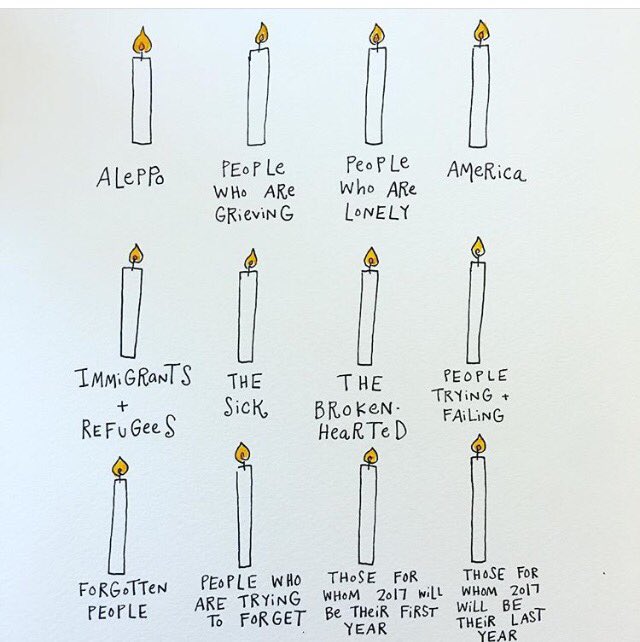 ALePPo
PEOPLE
WHO ARe
GRieviNG
PeoPLe
WHo ARe
LoNELY
AMeRica
IMMiGRaNTS
+
REFuGeeS
THE
SicK
THE
BROKeN-
HeaRTeD
PEOPLE
TRYiNG +
FAiLiNG
FoRGoTTeN
PEOPLE
PEOPLE WHO
ARE TRYiNG
To FoRGeT
THoSE FoR
WHoM 2017 WiLL
Be THeiR FiRST
YEAR
THoSE FoR
WHoM 2017
WiLL BE
THEiR LAST
YEAR